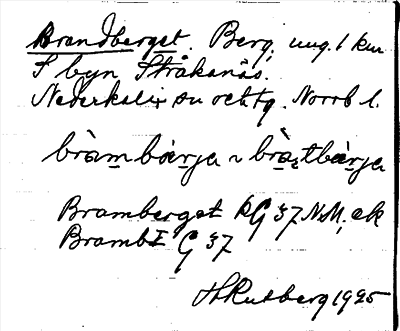 Brandberget. Berg, ung. 1 km
S byn Stråkanäs.
Nederkalix sn och tg. Norrb l.
bràm bárja ~ brà̱tbárja
Bramberget RG 37 NM, ek
Bramb I G 37
H Rutberg 1925